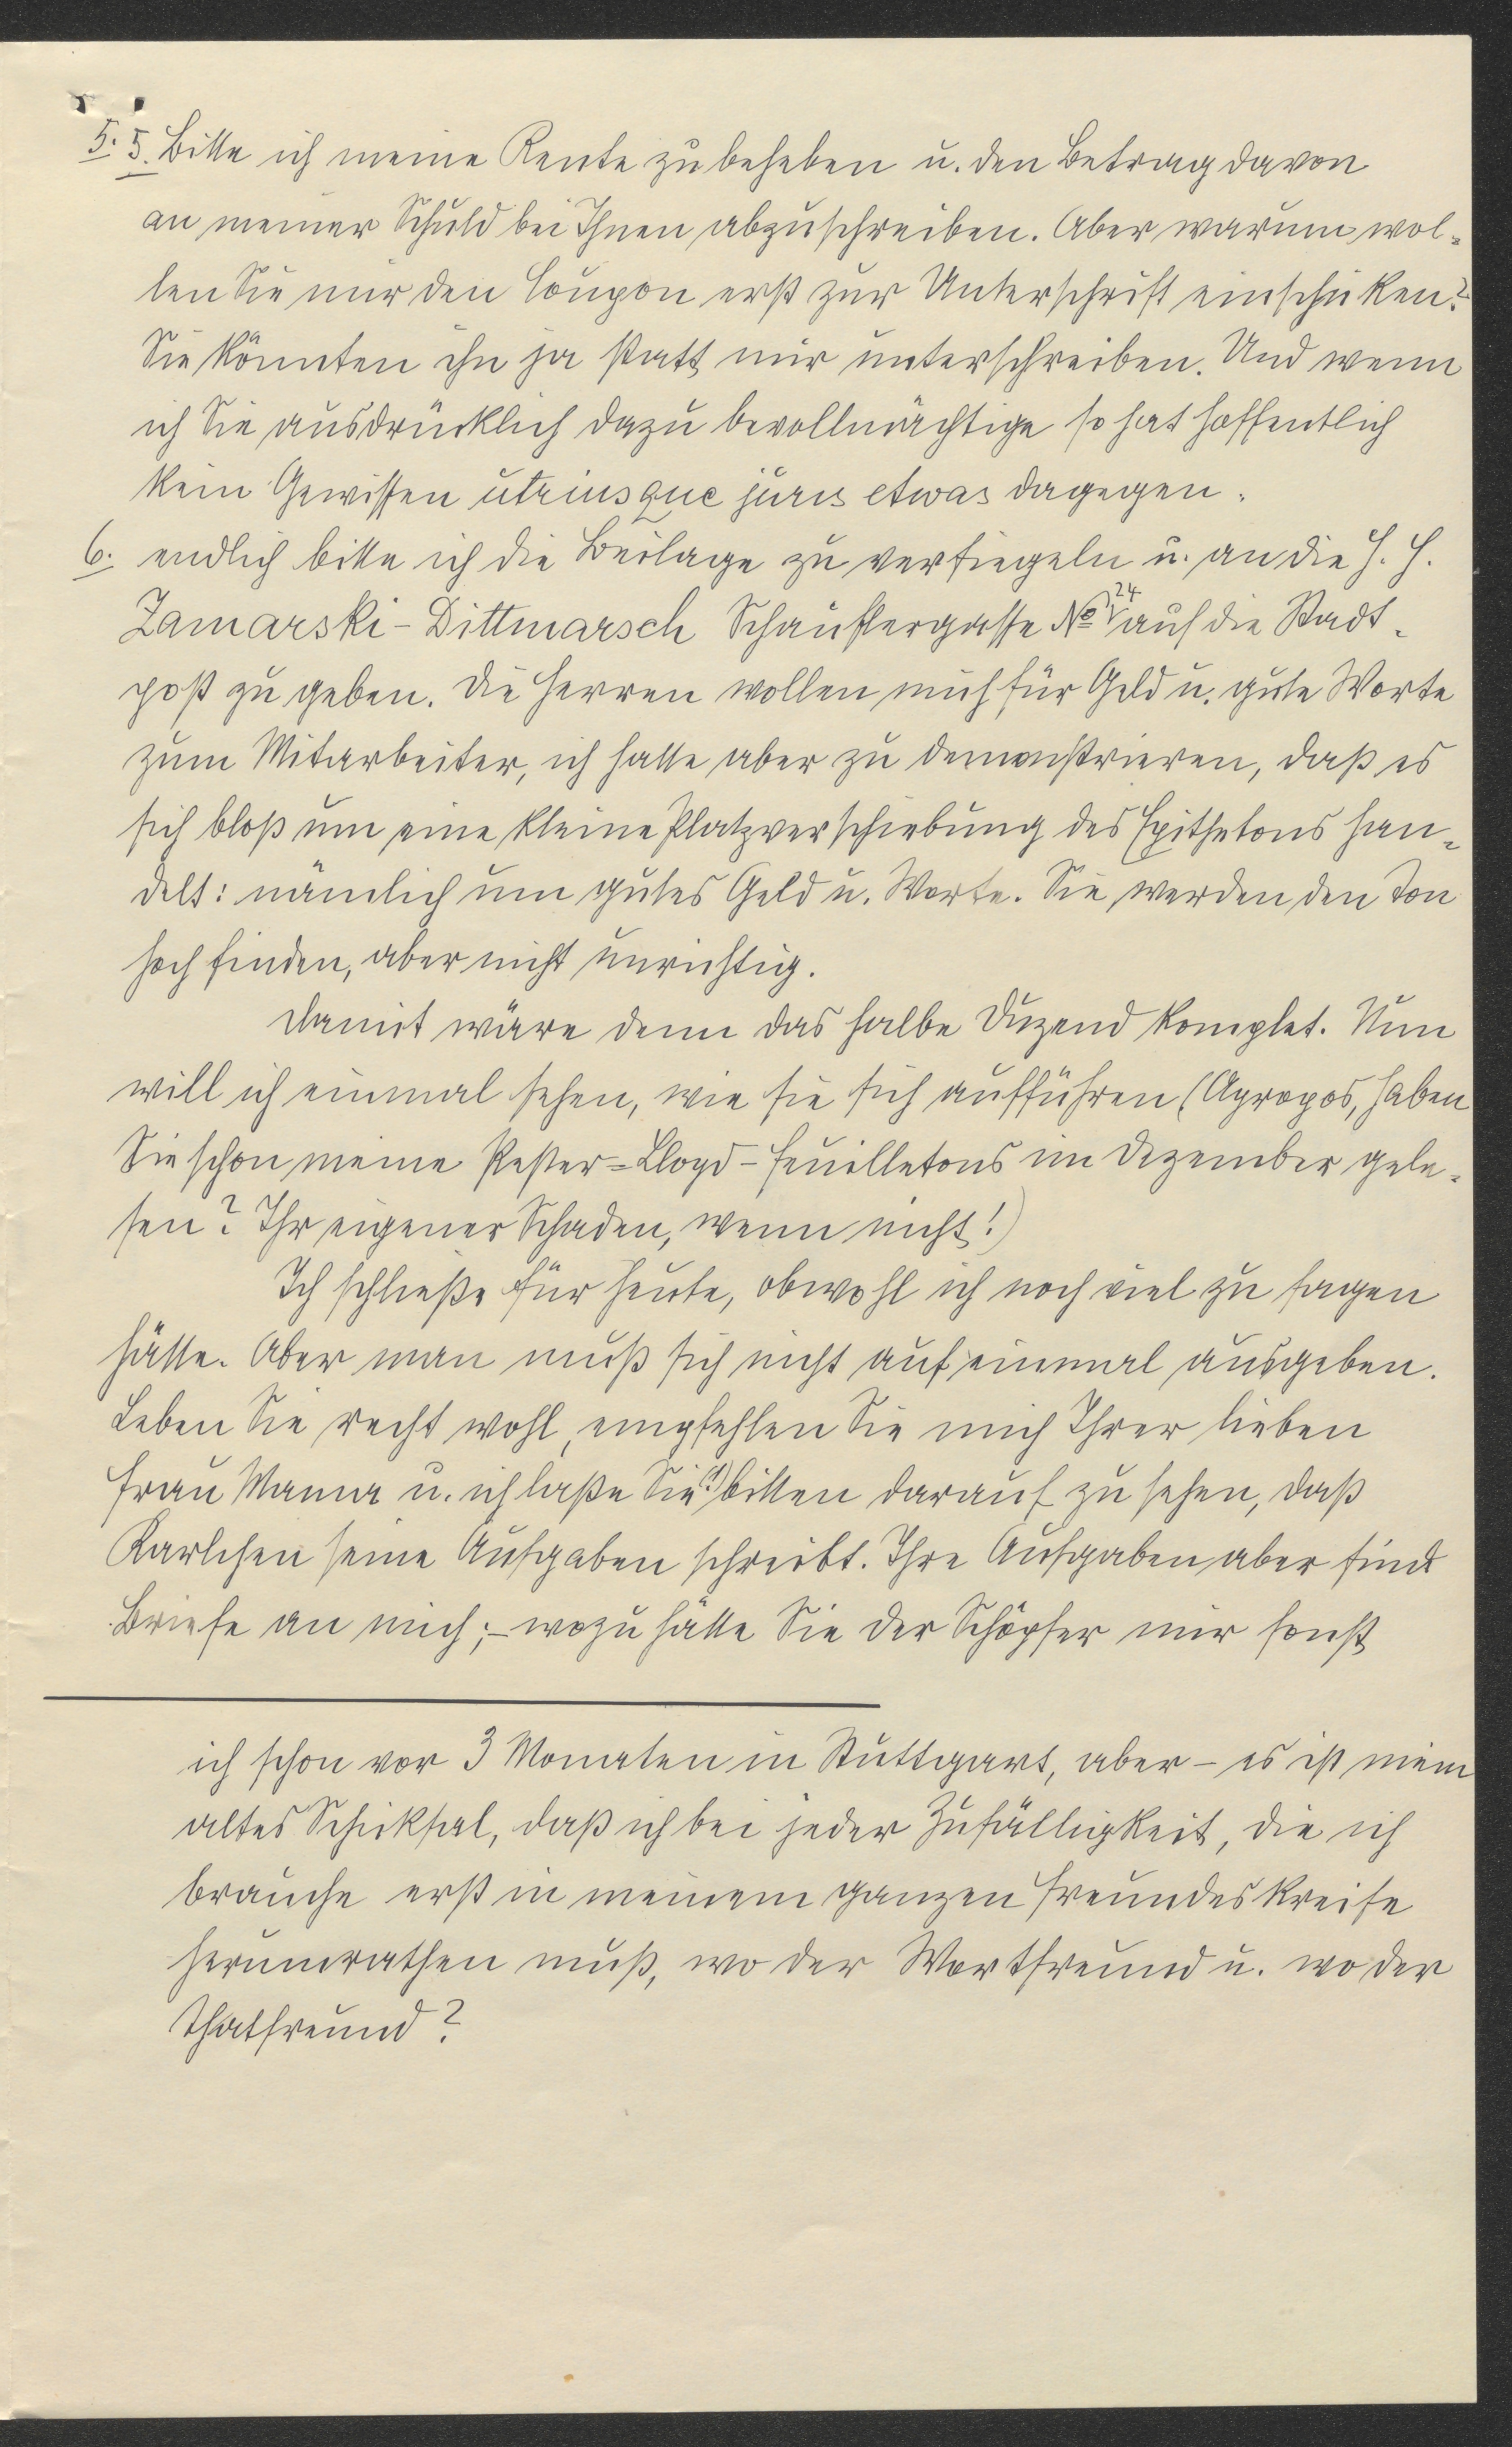 5. 5. Bitte ich meine Rente zu beheben u. den Betrag davon
an meiner Schuld bei Ihnen abzuschreiben. Aber warum wol-
len Sie mir den Coupon erst zur Unterschrift einschicken?
Sie könnten ihn ja statt mir unterschreiben. Und wenn
ich Sie ausdrücklich dazu bevollmächtige so hat hoffentlich
kein Gewissen utriusque juris etwas dagegen.
6. endlich bitte ich die Beilage zu versiegeln u. an die H. H.
Zamarski-Dittmarsch Schauflergasse No 24 auf die Stadt-
post zu geben. Die Herren wollen mich für Geld u. gute Worte
zum Mitarbeiter, ich hatte aber zu demonstrieren, daß es
sich bloß um eine kleine Platzverschiebung des Epithetons han-
delt: nämlich um gutes Geld u. Worte. Sie werden den Ton
hoch finden, aber nicht unrichtig.
Damit wäre denn das halbe Duzend komplet. Nun
will ich einmal sehen, wie sie sich aufführen (Apropos, haben
Sie schon meine Pester=Lloyd-Feuilletons im Dezember gele-
sen? Ihr eigener Schaden, wenn nicht!)
Ich schließe für heute, obwohl ich noch viel zu sagen
hätte. Aber man muß sich nicht auf einmal ausgeben.
Leben Sie recht wohl, empfehlen Sie mich Ihrer lieben
Frau Mama u. ich laße Sie bitten darauf zu sehen, daß
Karlchen seine Aufgaben schreibt. Ihre Aufgaben aber sind
Briefe an mich;- wozu hätte Sie der Schöpfer mir sonst
ich schon vor 3 Monaten in Stuttgart, aber - es ist mein
altes Schicksal, daß ich bei jeder Zufälligkeit, die ich
brauche erst in meinem ganzen Freundeskreise
herumrathen muß, wo der Wortfreund u. wo der
Thatfreund?